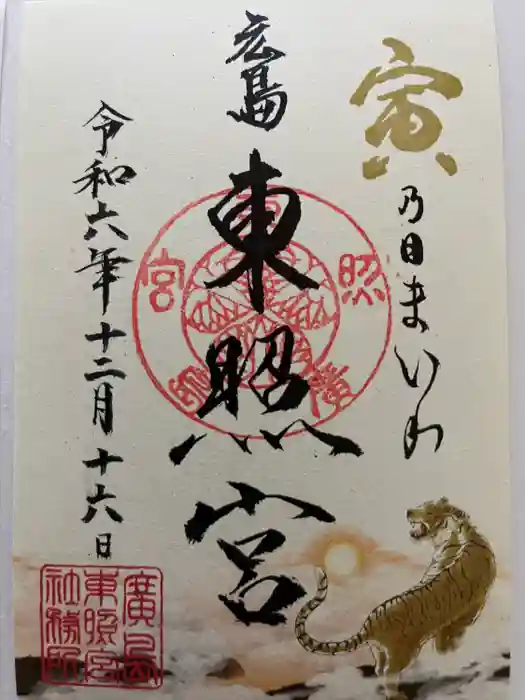 寅乃日まいり
広島
東照宮
令和六年十二月十六日
廣島
東照宮
社務所